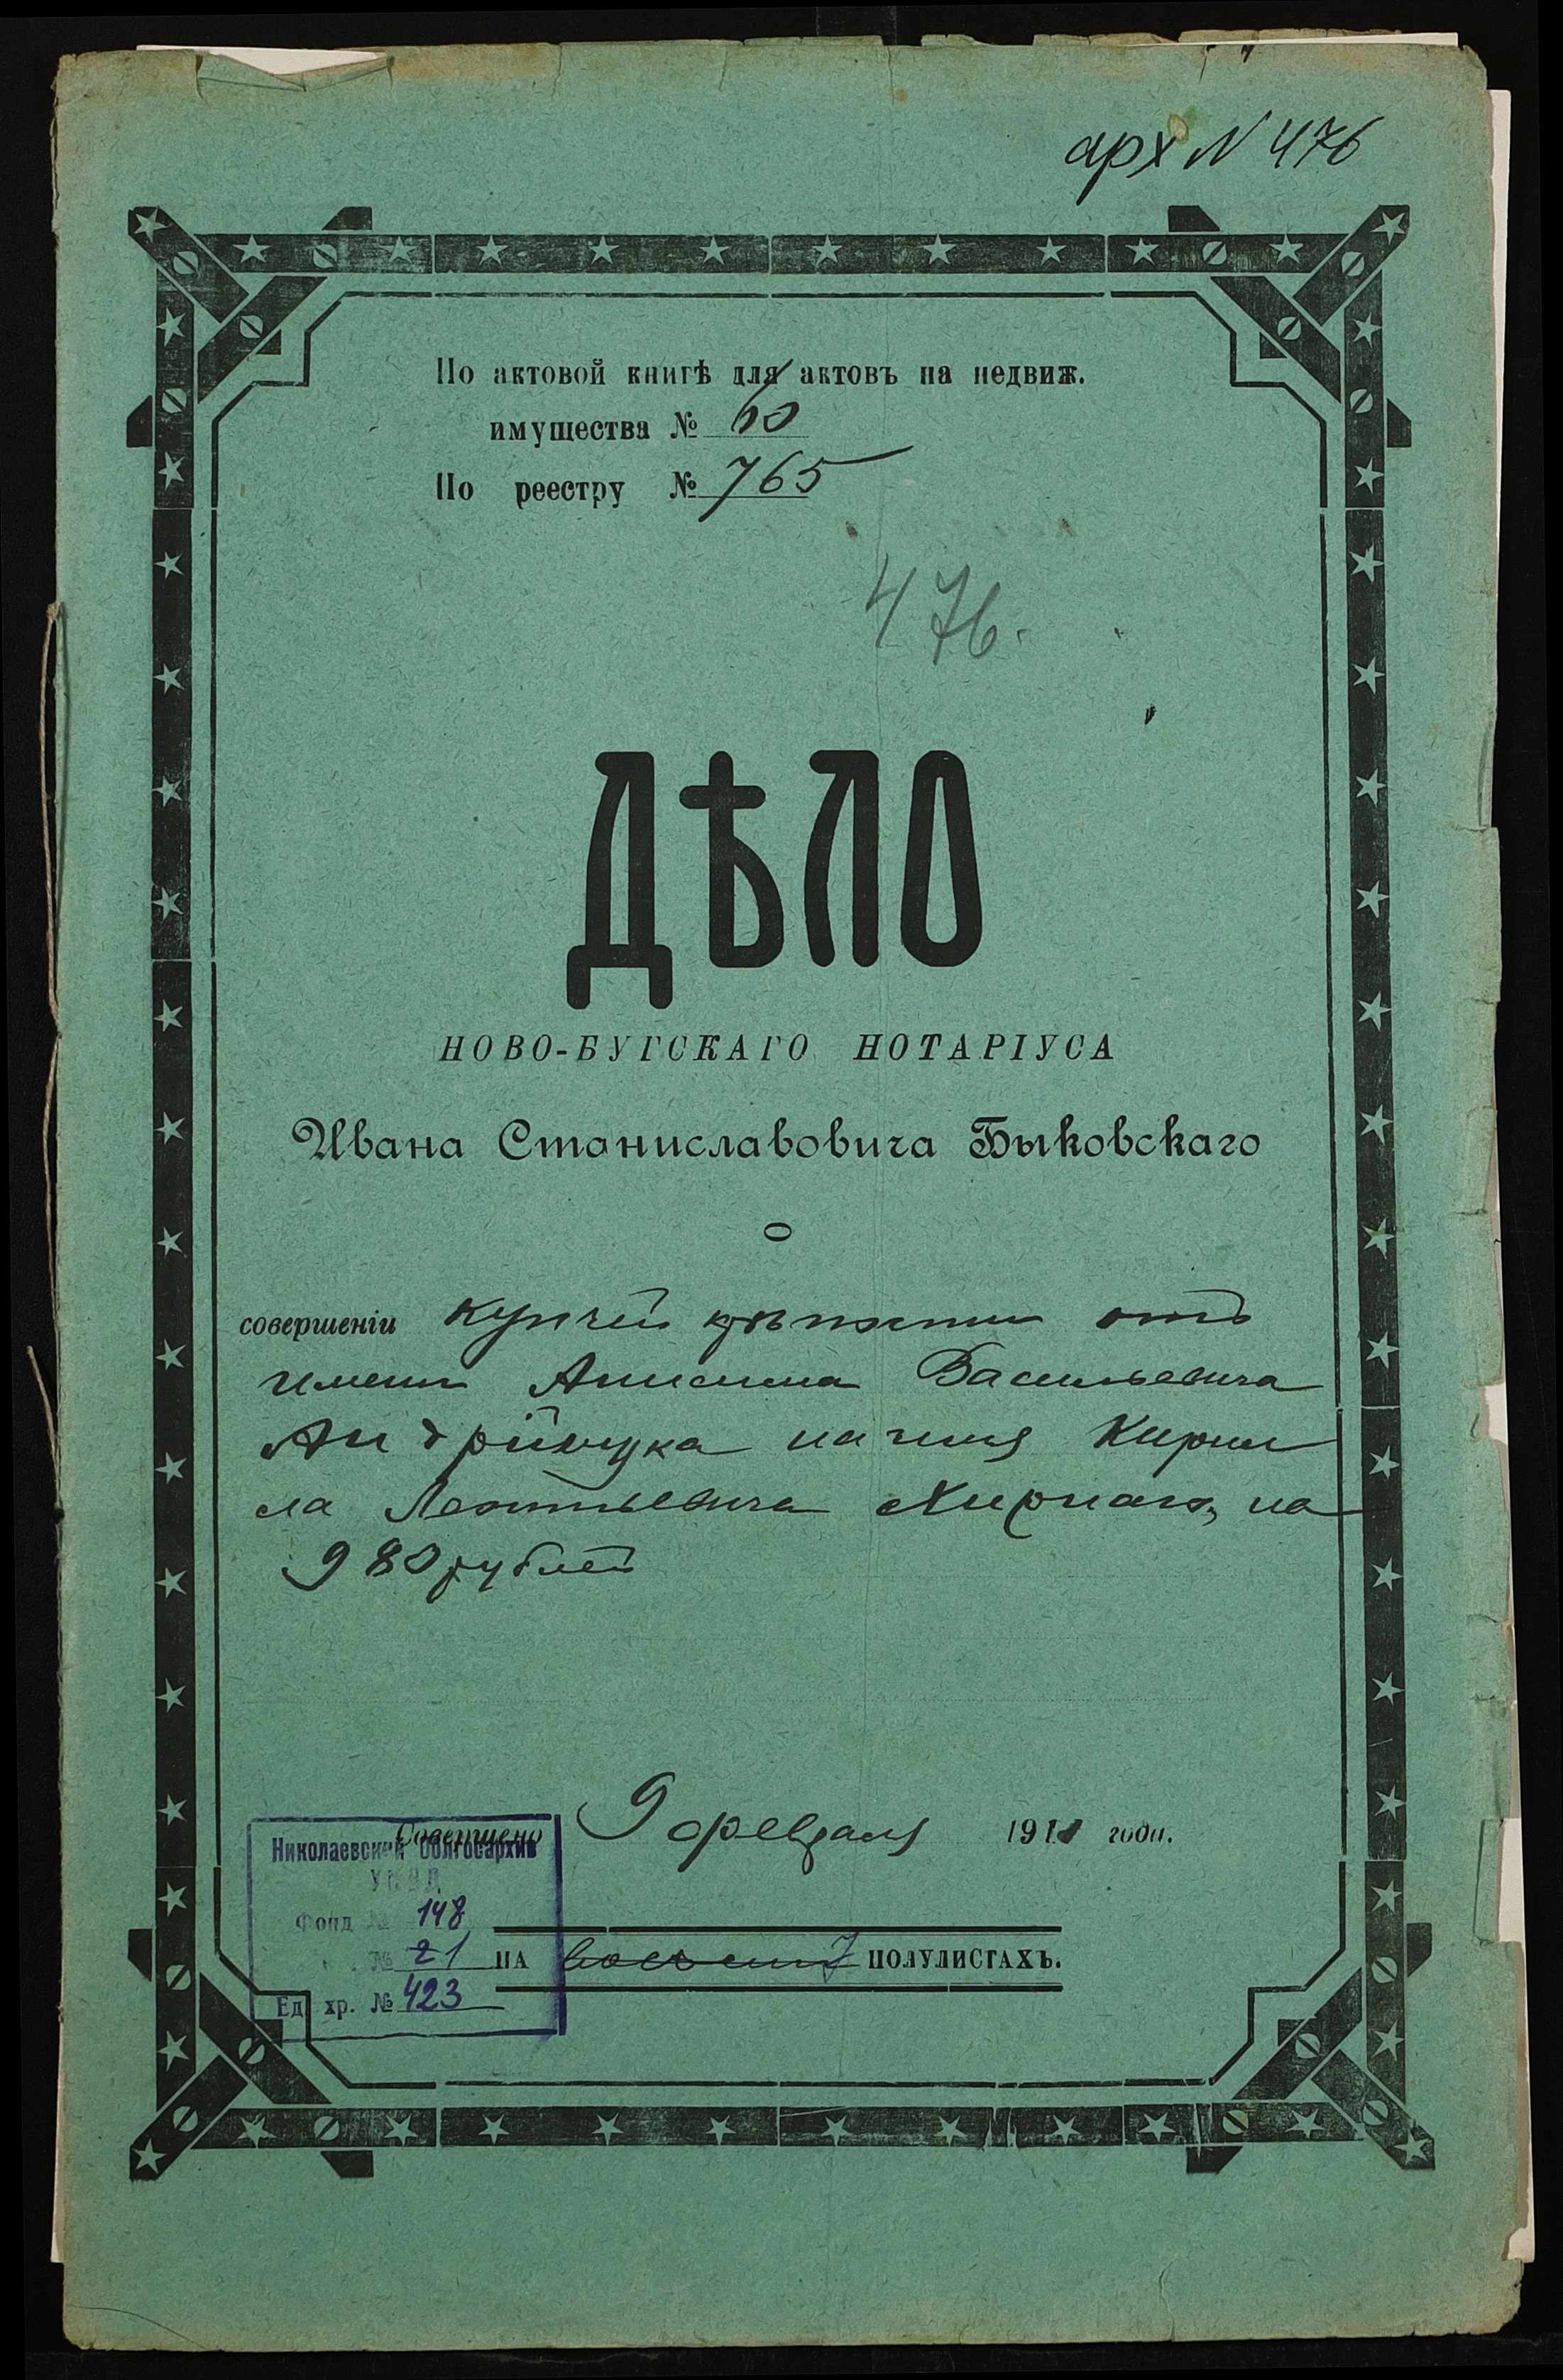 арх N 476
По актовой книгѣ для актовъ на недвиж.
имущества № 60
По реестру № 765
476.
ДѢЛО
НОВО-БУГСКАГО НОТАРІУСА
Ивана Станиславовича Быковскаго
о
совершеніи купчей крѣпости отъ
имени Анисима Васильевича
Андрійчука на имя Кирил
ла Леонтьевича на
980 рублей
Совершено 9 февраля 191 года.
Николаевский Облгосархив
УНКВД
Фонд № 148
№ 21
НА восьми 7 ПОЛУЛИСТАХЪ.
Ед. хр. № 423